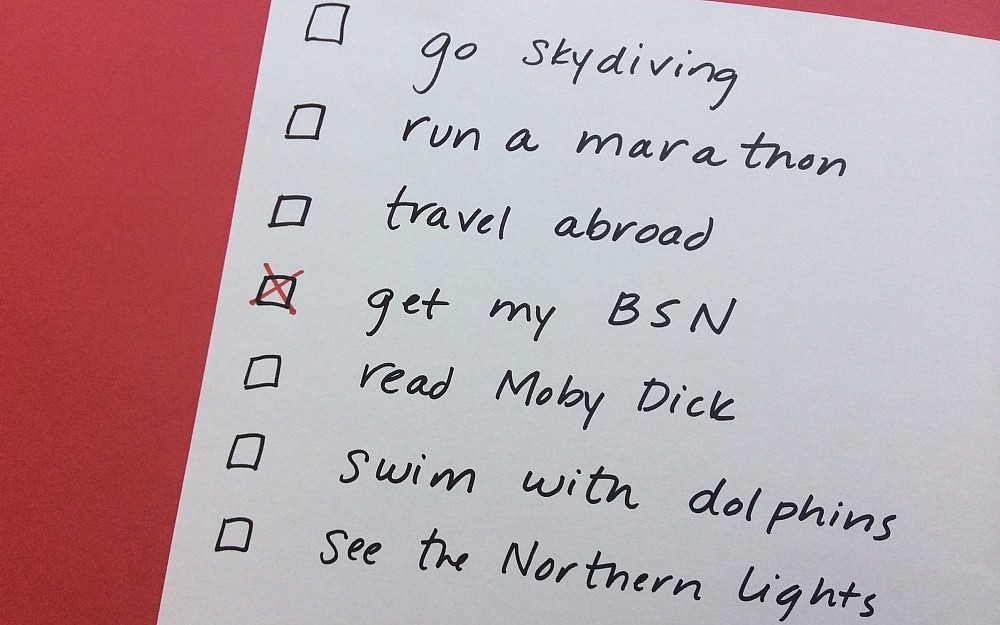 go skydiving
run a marathon
travel abroad
get my BSN
read Moby Dick
swim with dolphins
see the Northern lights